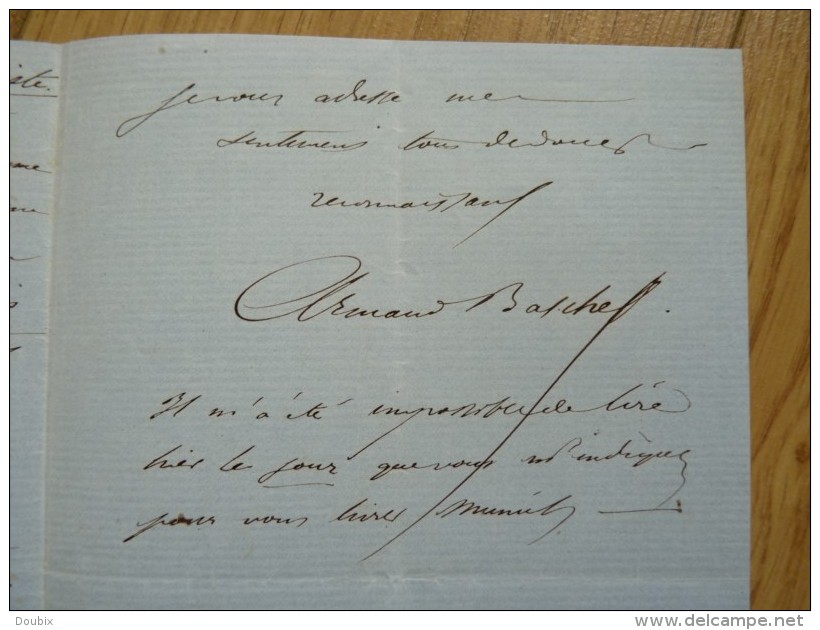 je vous adresse mes
sentimens tous dévoués
reconnaissant
Armand Baschet.
Il m'a été impossible de lire
hier le jour que vous m'indiquez
pour vous livrer
Doubix
delcampe.net